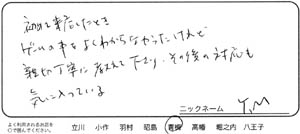 初めて来店したとき
ゲームの事をよくわからなかったけれど
親切丁寧に教えて下さり、その後の対応も
気に入っている
ニックネーム Y,M
よく利用されるお店を
○で囲んで下さい。
立川 小作 羽村 昭島 青梅 高幡 堀之内 八王子